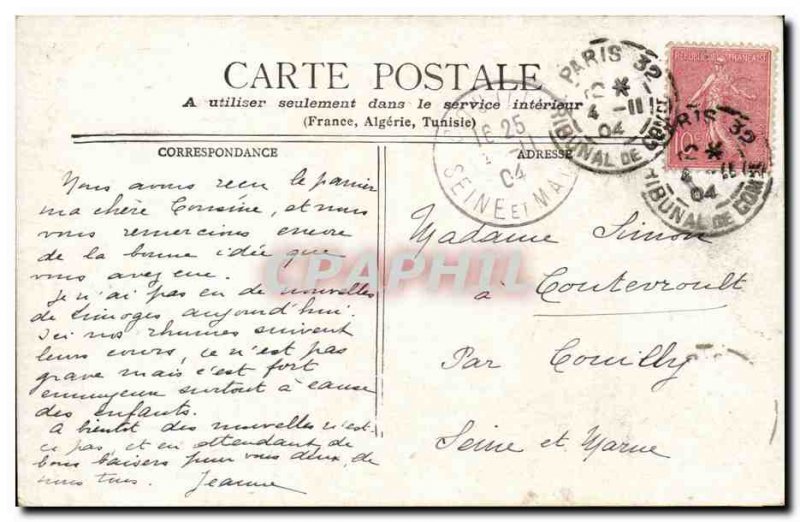 CARTE POSTALE
A utiliser seulement dans le service intérieur
(France, Algérie, Tunisie)
CORRESPONDANCE
ADRESSE
Nous avons reçu le panier
ma chère Cousine, et nous
vous remercions encore
de la bonne idée que
vous avez eue.
Je n'ai pas eu de nouvelles
de Limoges aujourd'hui.
Ici nos rhumes suivent
leurs cours, ce n'est pas
grave mais c'est fort
ennuyeux surtout à cause
des enfants.
A bientôt des nouvelles n'est-
ce pas et en attendant de
bons baisers pour vous deux, de
nous tous. Jeanne
Madame Simon
à Coutevroult
Par Couilly
Seine et Marne
PARIS 32
12 *
4 -11
04
TRIBUNAL DE COMCE
PARIS 32
12 *
4 -11
04
TRIBUNAL DE COMCE
16 25
-11
04
SEINE ET MARNE
RÉPUBLIQUE FRANÇAISE
10
CPAPHIL